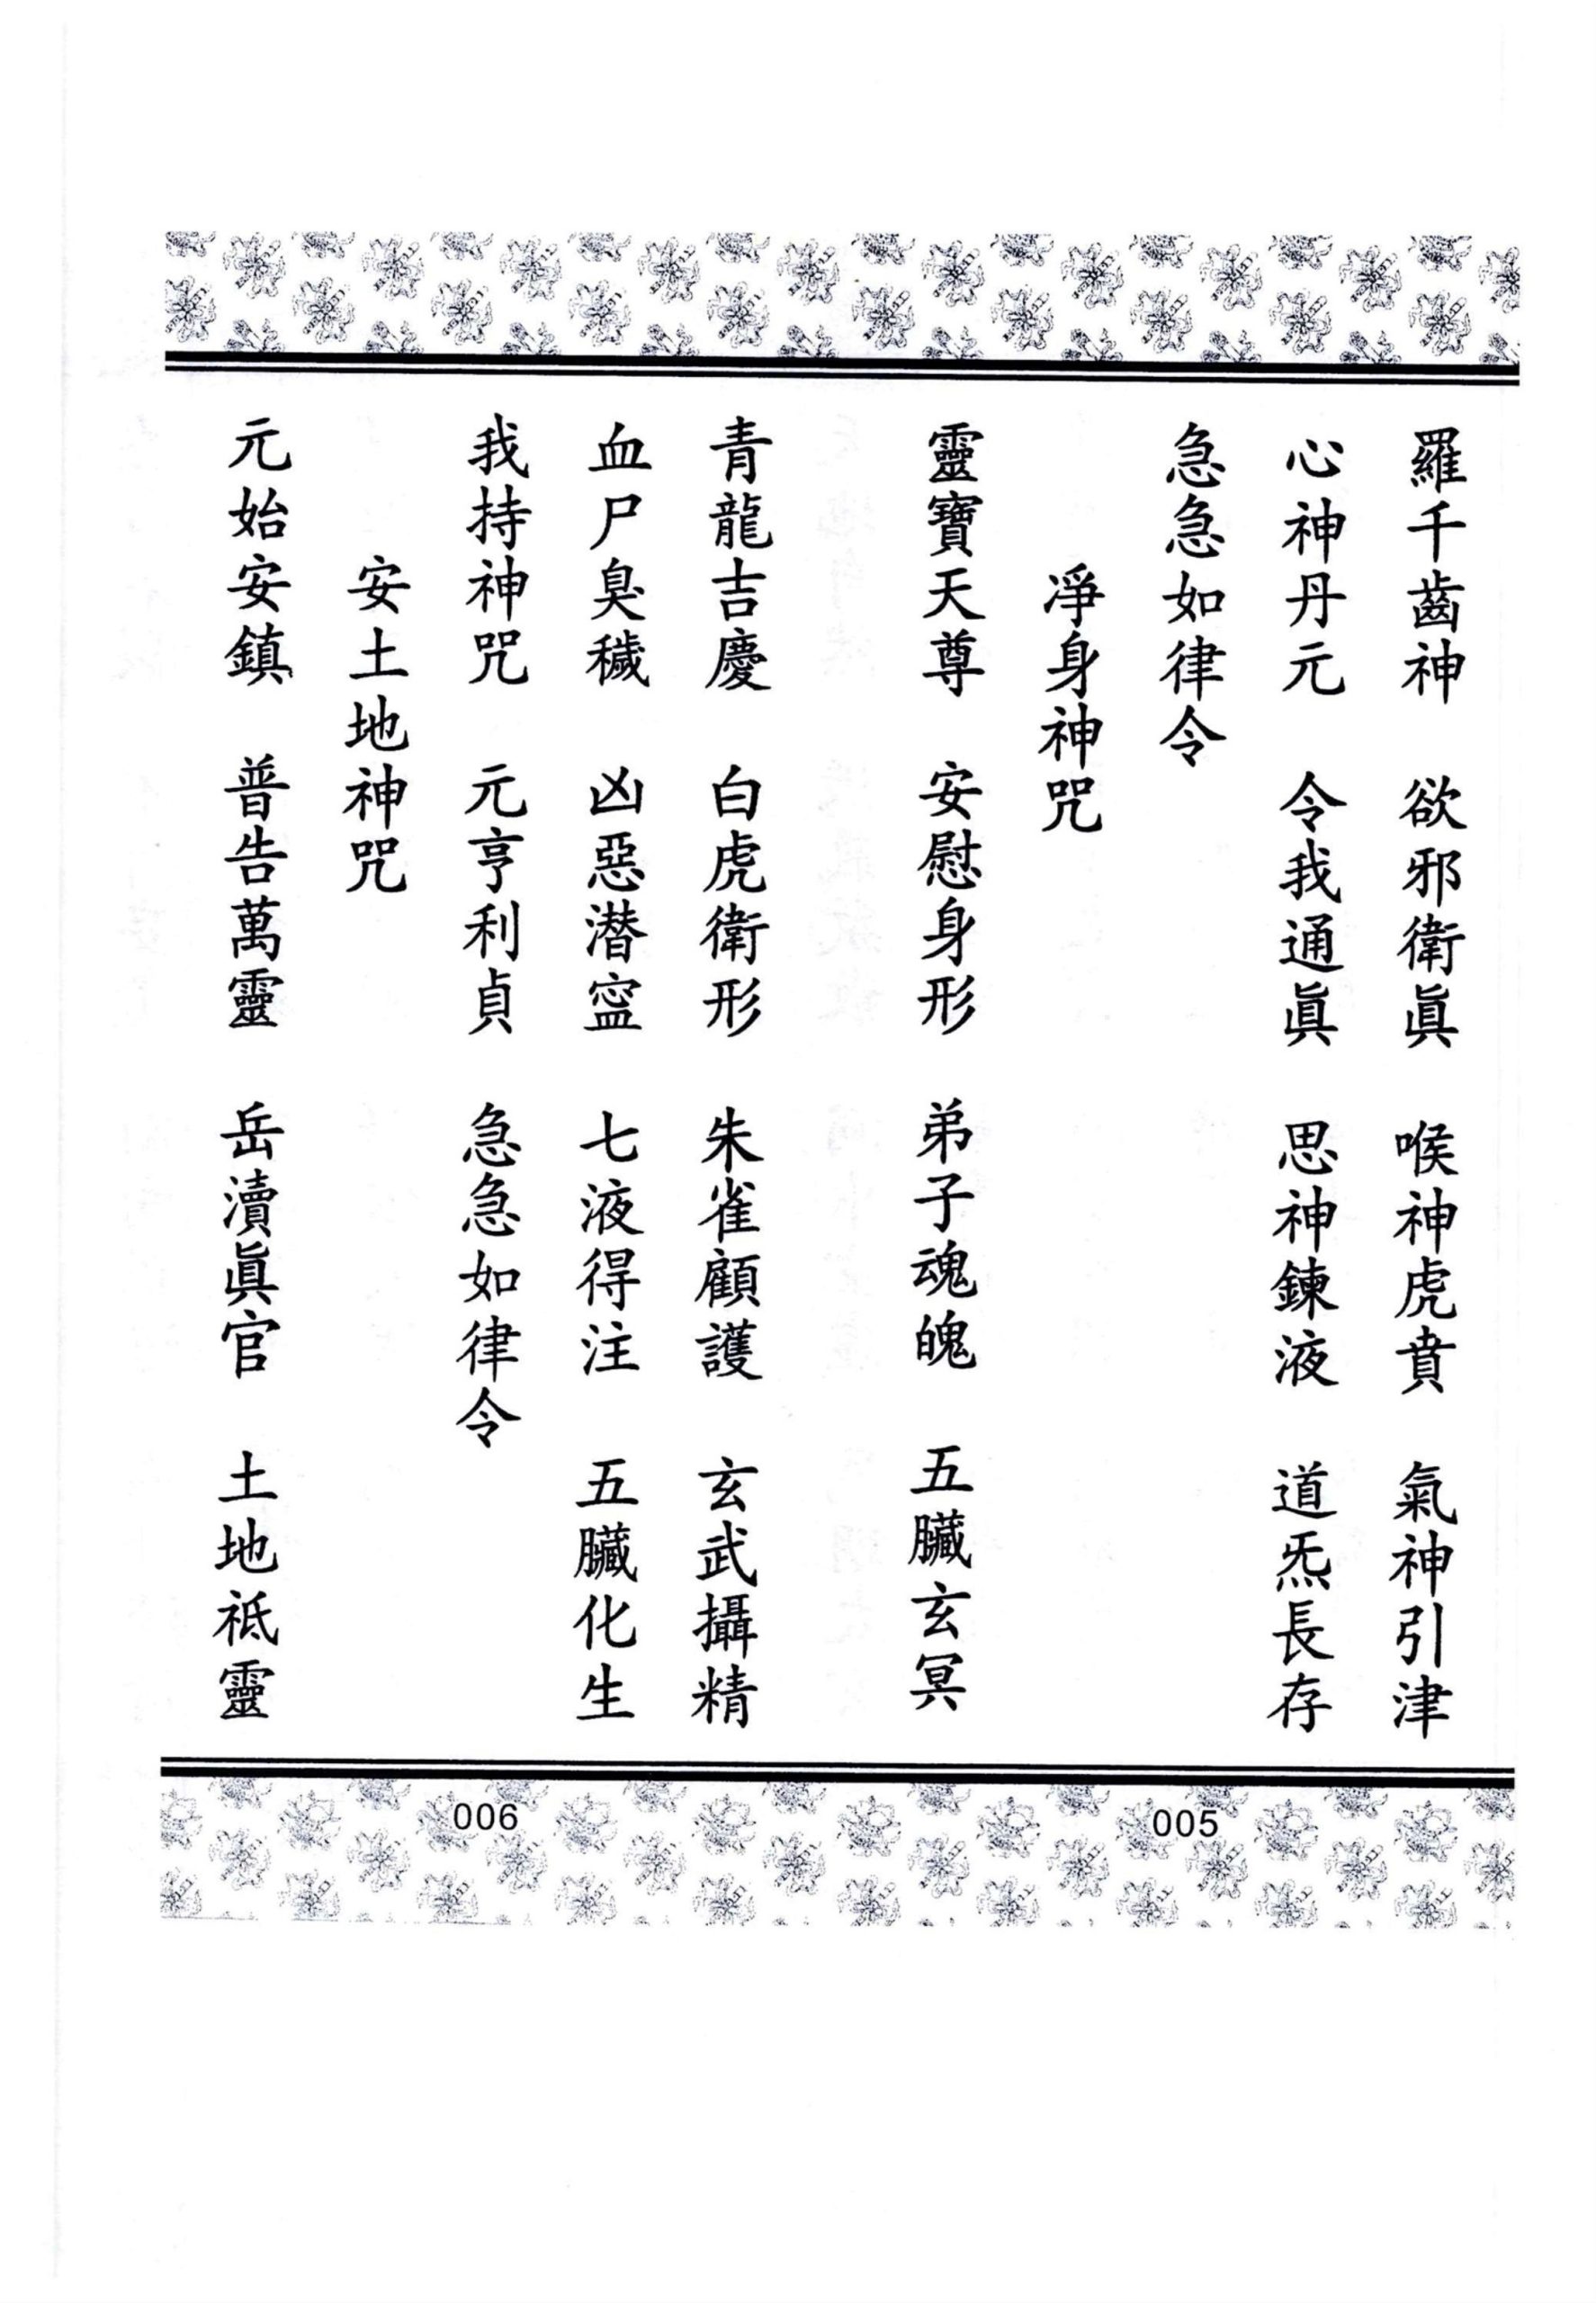 羅千齒神　欲邪衛眞　喉神虎賁　氣神引津
心神丹元　令我通眞　思神鍊液　道炁長存
急急如律令
淨身神咒
靈寶天尊　安慰身形　弟子魂魄　五臟玄冥
青龍吉慶　白虎衛形　朱雀顧護　玄武攝精
血尸臭穢　凶惡潜寍　七液得注　五臟化生
我持神咒　元亨利貞　急急如律令
安土地神咒
元始安鎮　普告萬靈　岳瀆眞官　土地祇靈
005
006